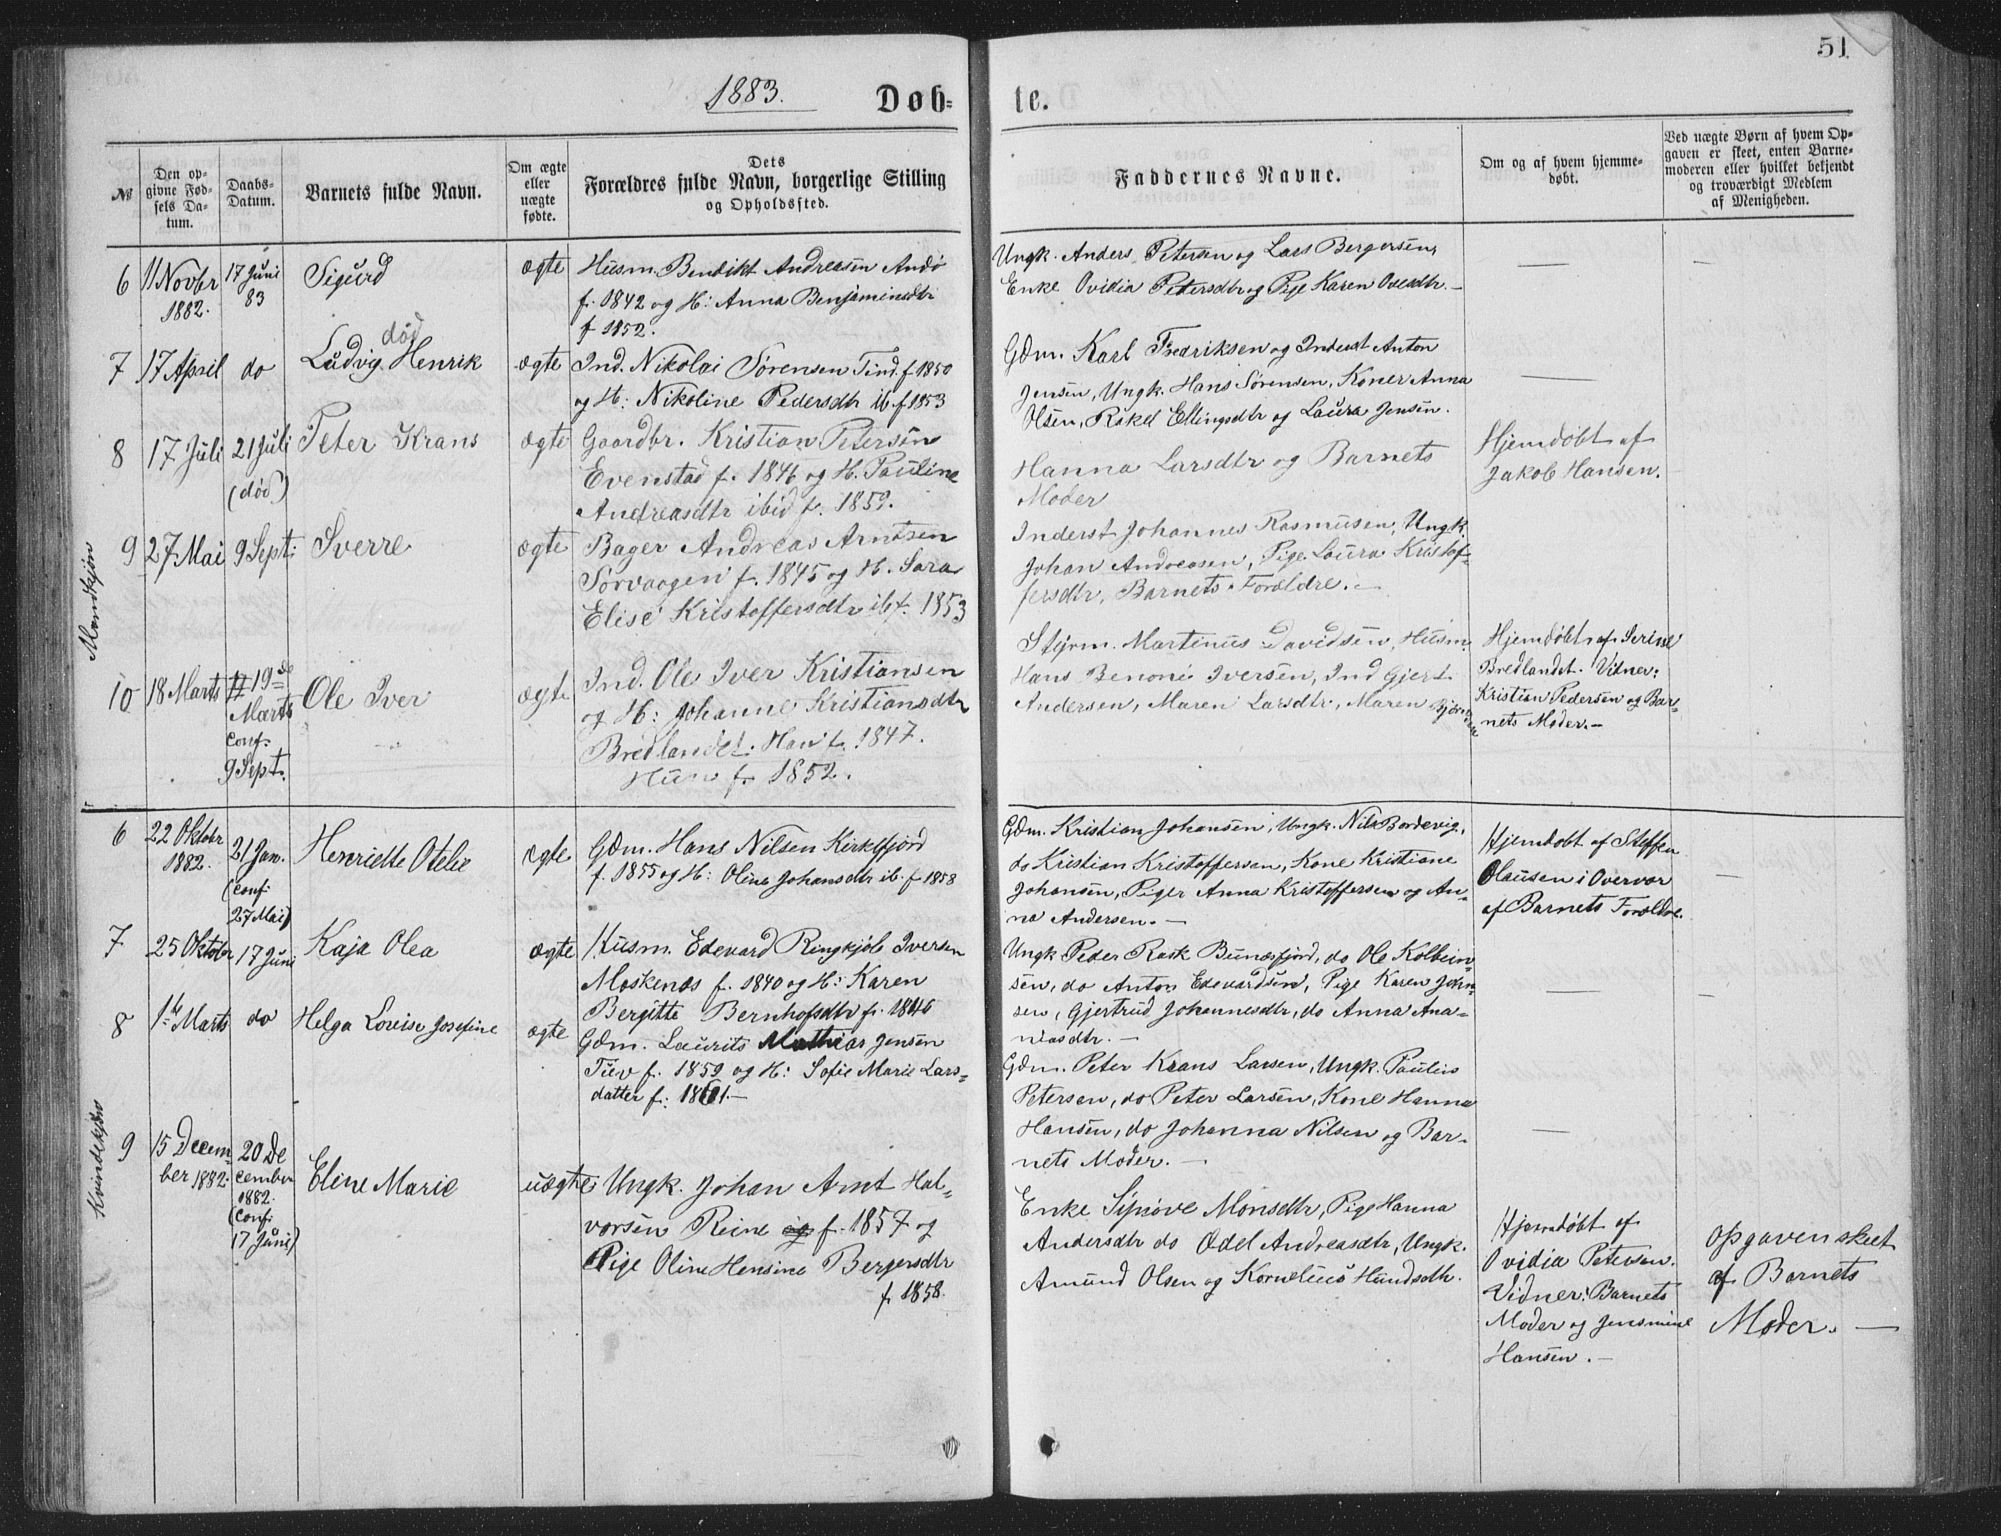 1883.
Døb=
te.
51
№
Den op-
givne Fød-
sels Da-
tum.
Daabs-
Datum.
Barnets fulde Navn.
Om ægte
eller
uægte
fødte.
Dets
Forældres fulde Navn, borgerlige Stilling
og Opholdssted.
Faddernes Navne.
Om og af hvem hjemme-
døbt.
Ved uægte Børn af hvem Op-
gaven er skeet, enten Barne-
moderen eller hvilket bekjendt
og troværdigt Medlem
af Menigheden.
Mandkjøn
6
11 Novbr
1882.
17 Juni
83
Sigurd
ægte
Husm. Bendikt Andreasen Andö
f. 1842 og H: Anna Benjaminsdtr
f 1852.
Ungk. Anders Petersen og Lars Bergersen,
Enke Ovidia Petersdtr og Pige Karen Olesdtr. -
—
—
7
17 April
do
død
Ludvig Henrik
ægte
Ind. Nikolai Sørensen Tind f 1850
og H: Nikoline Pedersdtr ib. f 1853
Gdm. Karl Fredriksen og Inderst Anton
Jensen, Ungk. Hans Sörensen, Koner Anna
Olsen, Rakel Ellingsdtr og Laura Jensen.
—
8
17 Juli
21 Juli
(död)
Peter Krans
ægte
Gaardbr. Kristian Petersen
Evenstad f. 1846 og H. Pauline
Andreasdtr ibid f. 1859.
Hanna Larsdtr og Barnets
Moder
Hjemdöbt af
Jakob Hansen.
9
27 Mai
9 Sept:
Sverre
ægte
Bager Andreas Arntsen
Sörvaagen f. 1845 og H. Sara
Elise Kristoffersdtr ib f. 1853
Inderst Johannes Rasmusen, Ungk.
Johan Andreasen, Pige Laura Kristof-
fersdtr, Barnets Forældre. -
10
18 Marts
19de
Marts
conf.
9 Sept.
Ole Iver
ægte
Ind. Ole Iver Kristiansen
og H: Johanne Kristiansdtr
Bredlandet. Han f. 1847.
Hun f. 1852.
Styrm. Martinus Davidsen, Husm.
Hans Benoni Iversen, Ind Gjert
Andersen, Maren Larsdtr, Maren
Hjemdöbt af Serine
Bredlandet. Vidner:
Kristian Pedersen og Bar-
nets Moder. -
Kvindekjøn
6
22 Oktobr
1882.
21 Jan.
(conf.
27 Mai)
Henriette Otelie
ægte
Gdm. Hans Nilsen Kirkefjord
f. 1855 og H: Oline Johansdtr ib. f 1858
Gdm. Kristian Johansen, Ungk. Nils Bordevig,
do Kristian Kristoffersen, Kone Kristiane
Johansen, Piger Anna Kristoffersen og An-
na Andersen. -
Hjemdöbt af Steffen
Olausen i Overvær
af Barnets Forældre.
—
7
25 Oktober
17 Juni
Kaja Olea
ægte
Husm. Edevard Ringkjöb Iversen
Moskenes f. 1840 og H: Karen
Bergitte Bernhofsdtr f. 1846
Ungk Peder Rask Bunæsfjord, do Ole Kolbein-
sen, do Anton Edevardsen, Pige Karen John-
sen, Gjertrud Johannesdtr, do Anna Ana-
niasdtr. -
—
—
8
1ste Marts
do
Helga Lovise Josefine
ægte
Gdm. Laurits Mathias Jensen
Tuv f. 1859 og H: Sofie Marie Lars-
datter f: 1861. -
Gdm. Peter Krans Larsen, Ungk. Paulus
Petersen, do Peter Larsen, Kone Hanna
Hansen, do Johanna Nilsen og Bar-
nets Moder. -
—
9
15 Decem-
ber 1882.
20 De
cember
1882.
(conf.
17 Juni)
Eline Marie
uægte
Ungk. Johan Arnt Hal-
vorsen Reine og f. 1857 og
Pige Oline Hensine Bergersdtr
f. 1858.
Enke Synöve Monsdtr, Pige Hanna
Andersdtr do Odel Andreasdtr, Ungk.
Amund Olsen og Kornelius
Hjemdöbt af
Ovidia Petersen.
Vidner: Barnets
Moder og Jensmine
Hansen. -
Opgaven skeet
af Barnets
Moder. -